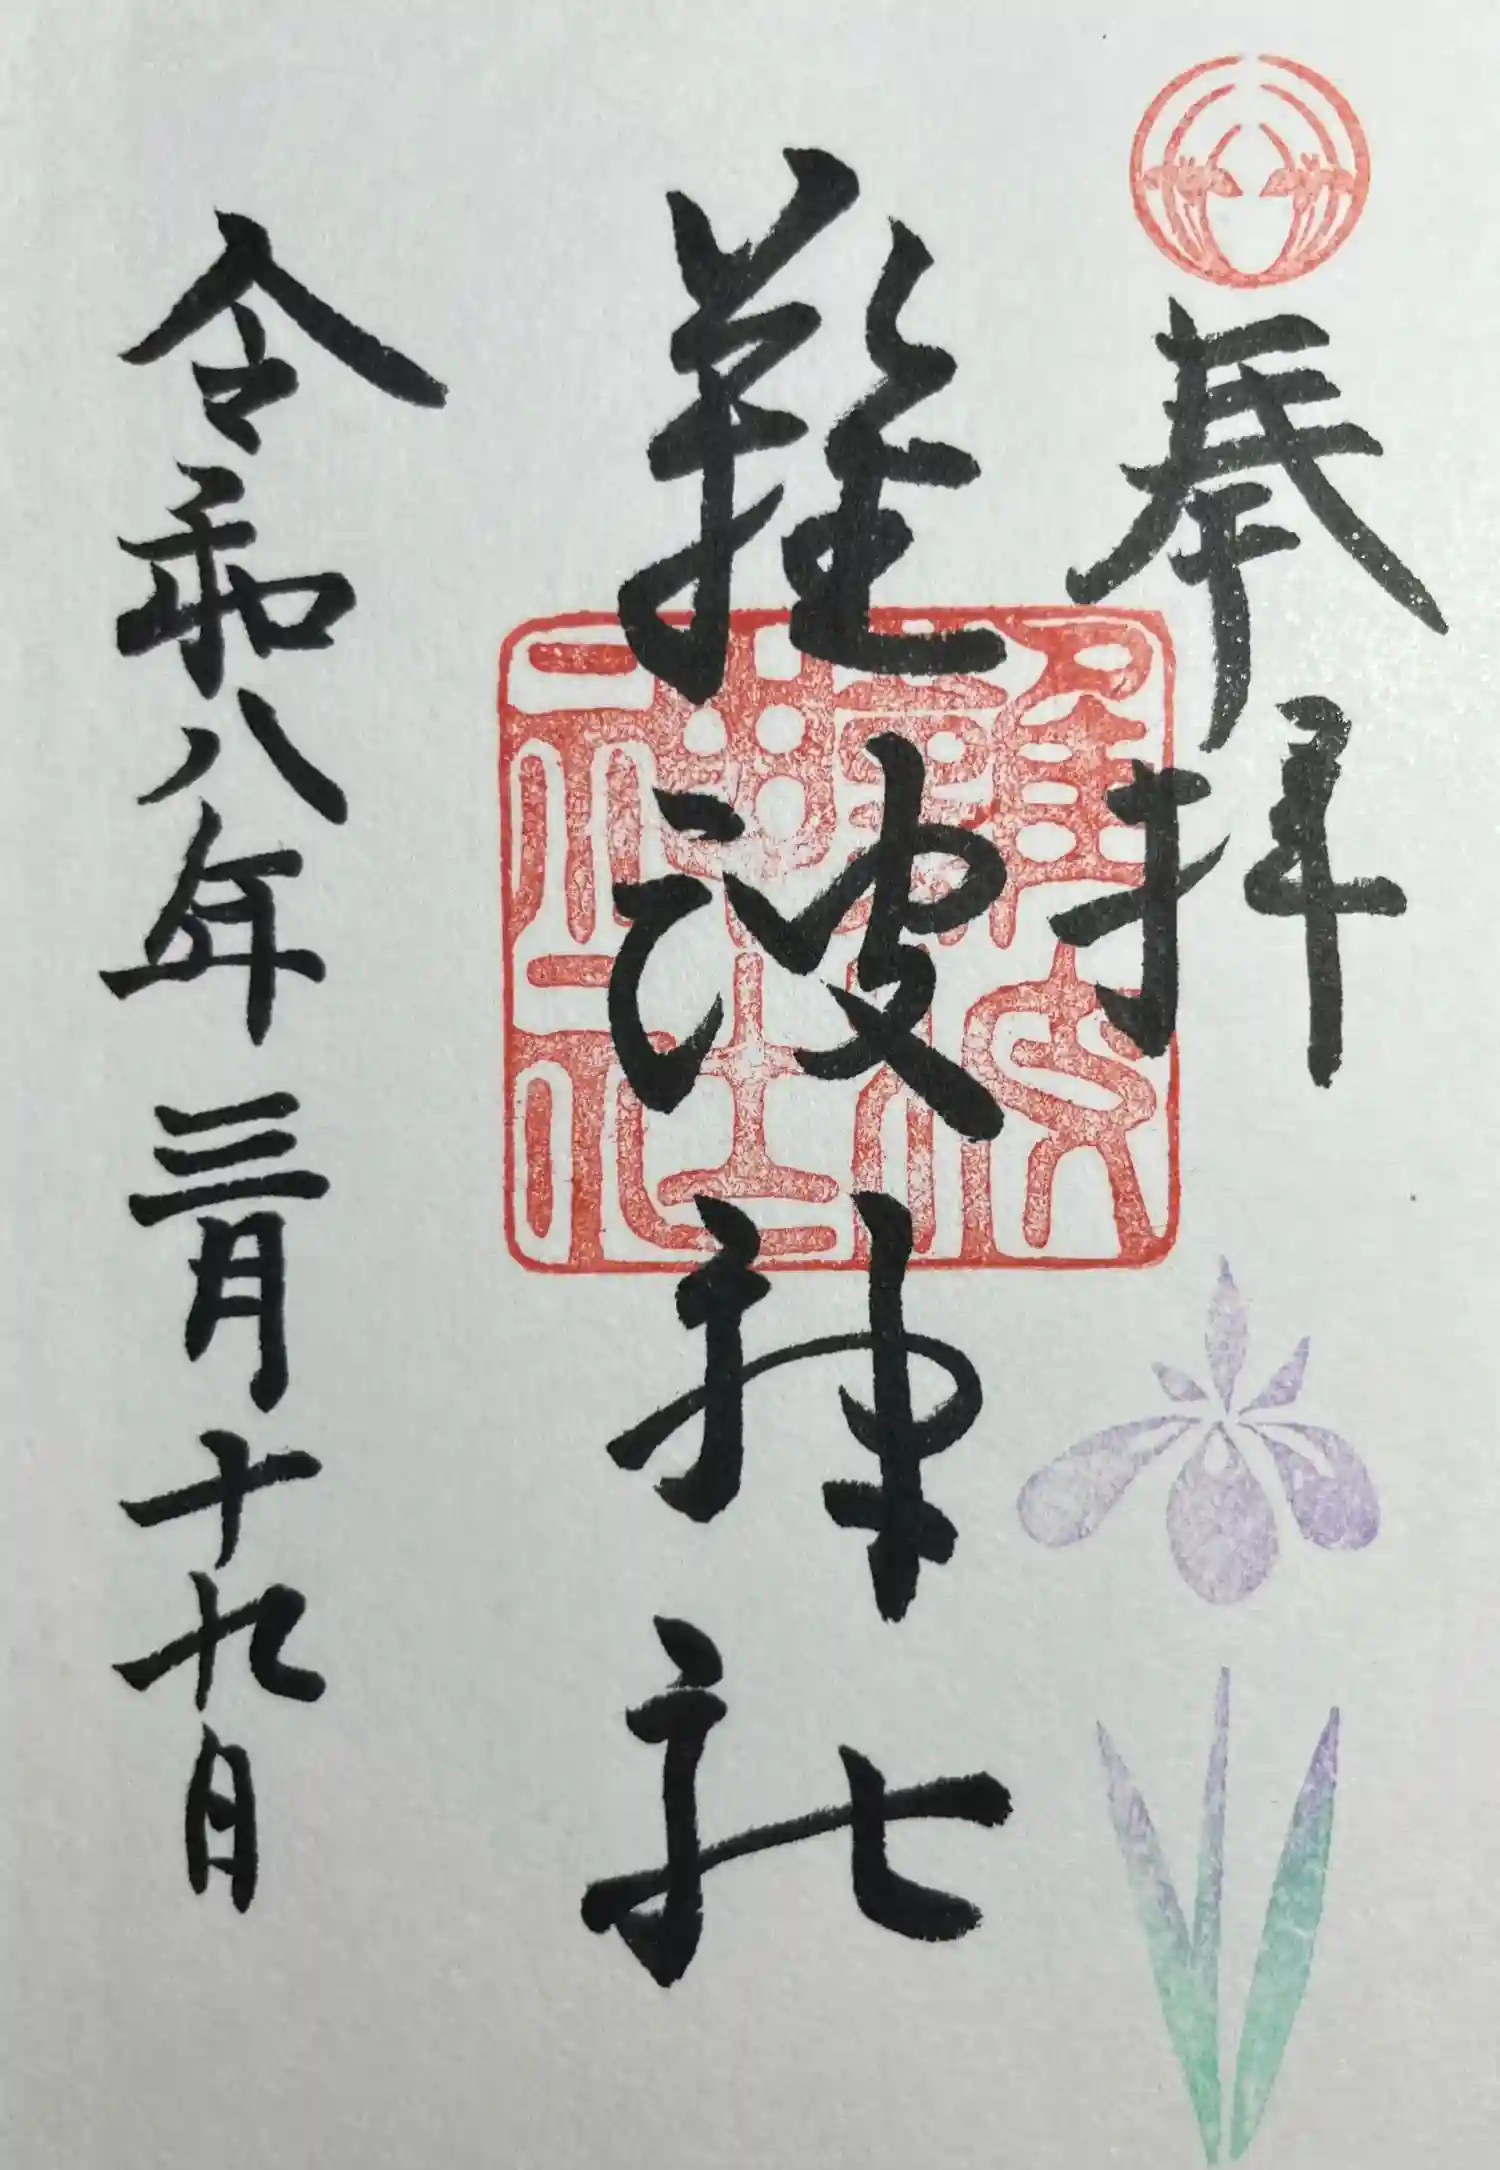 奉拝
難波神社
令和八年三月十九日
難波
神社